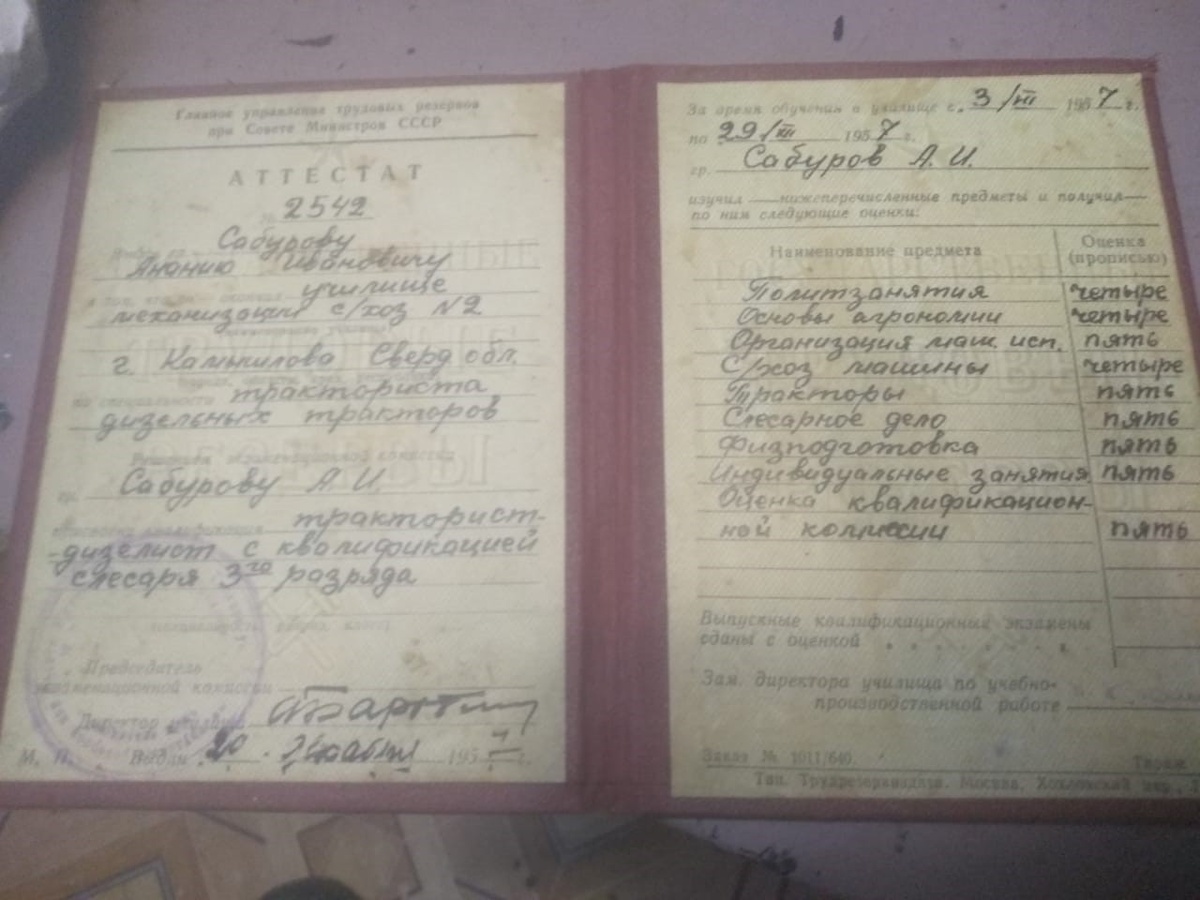 Главное управление трудовых резервов
при Совете Министров СССР
АТТЕСТАТ
2542
Сабурову
Ананию Ивановичу
училище
механизации с/хоз N2
г. Камышлова Сверд обл.
по специальности тракториста
дизельных тракторов
Решением экзаменационной комиссии
гр. Сабурову А. И.
квалификация тракторист-
дизелист с квалификацией
слесаря 3го разряда
Председатель
экзаменационной комиссии
Директор училища
М. П. Выдан 195 г.
За время обучения в училище с 3/III 1957 г.
по 29/XII 1957 г.
гр. Сабуров А. И.
изучил нижеперечисленные предметы и получил
по ним следующие оценки:
Наименование предмета Оценка (прописью)
Политзанятия четыре
Основы агрономии четыре
Организация маш. исп. пять
С/хоз машины четыре
Тракторы пять
Слесарное дело пять
Физподготовка пять
Индивидуальные занятия пять
Оценка квалификацион-
ной комиссии пять
Выпускные квалификационные экзамены
сданы с оценкой
Зам. директора училища по учебно-
производственной работе
Заказ № 1011/640. Тираж
Тип. Трудрезервиздата. Москва, Хохловский пер.,